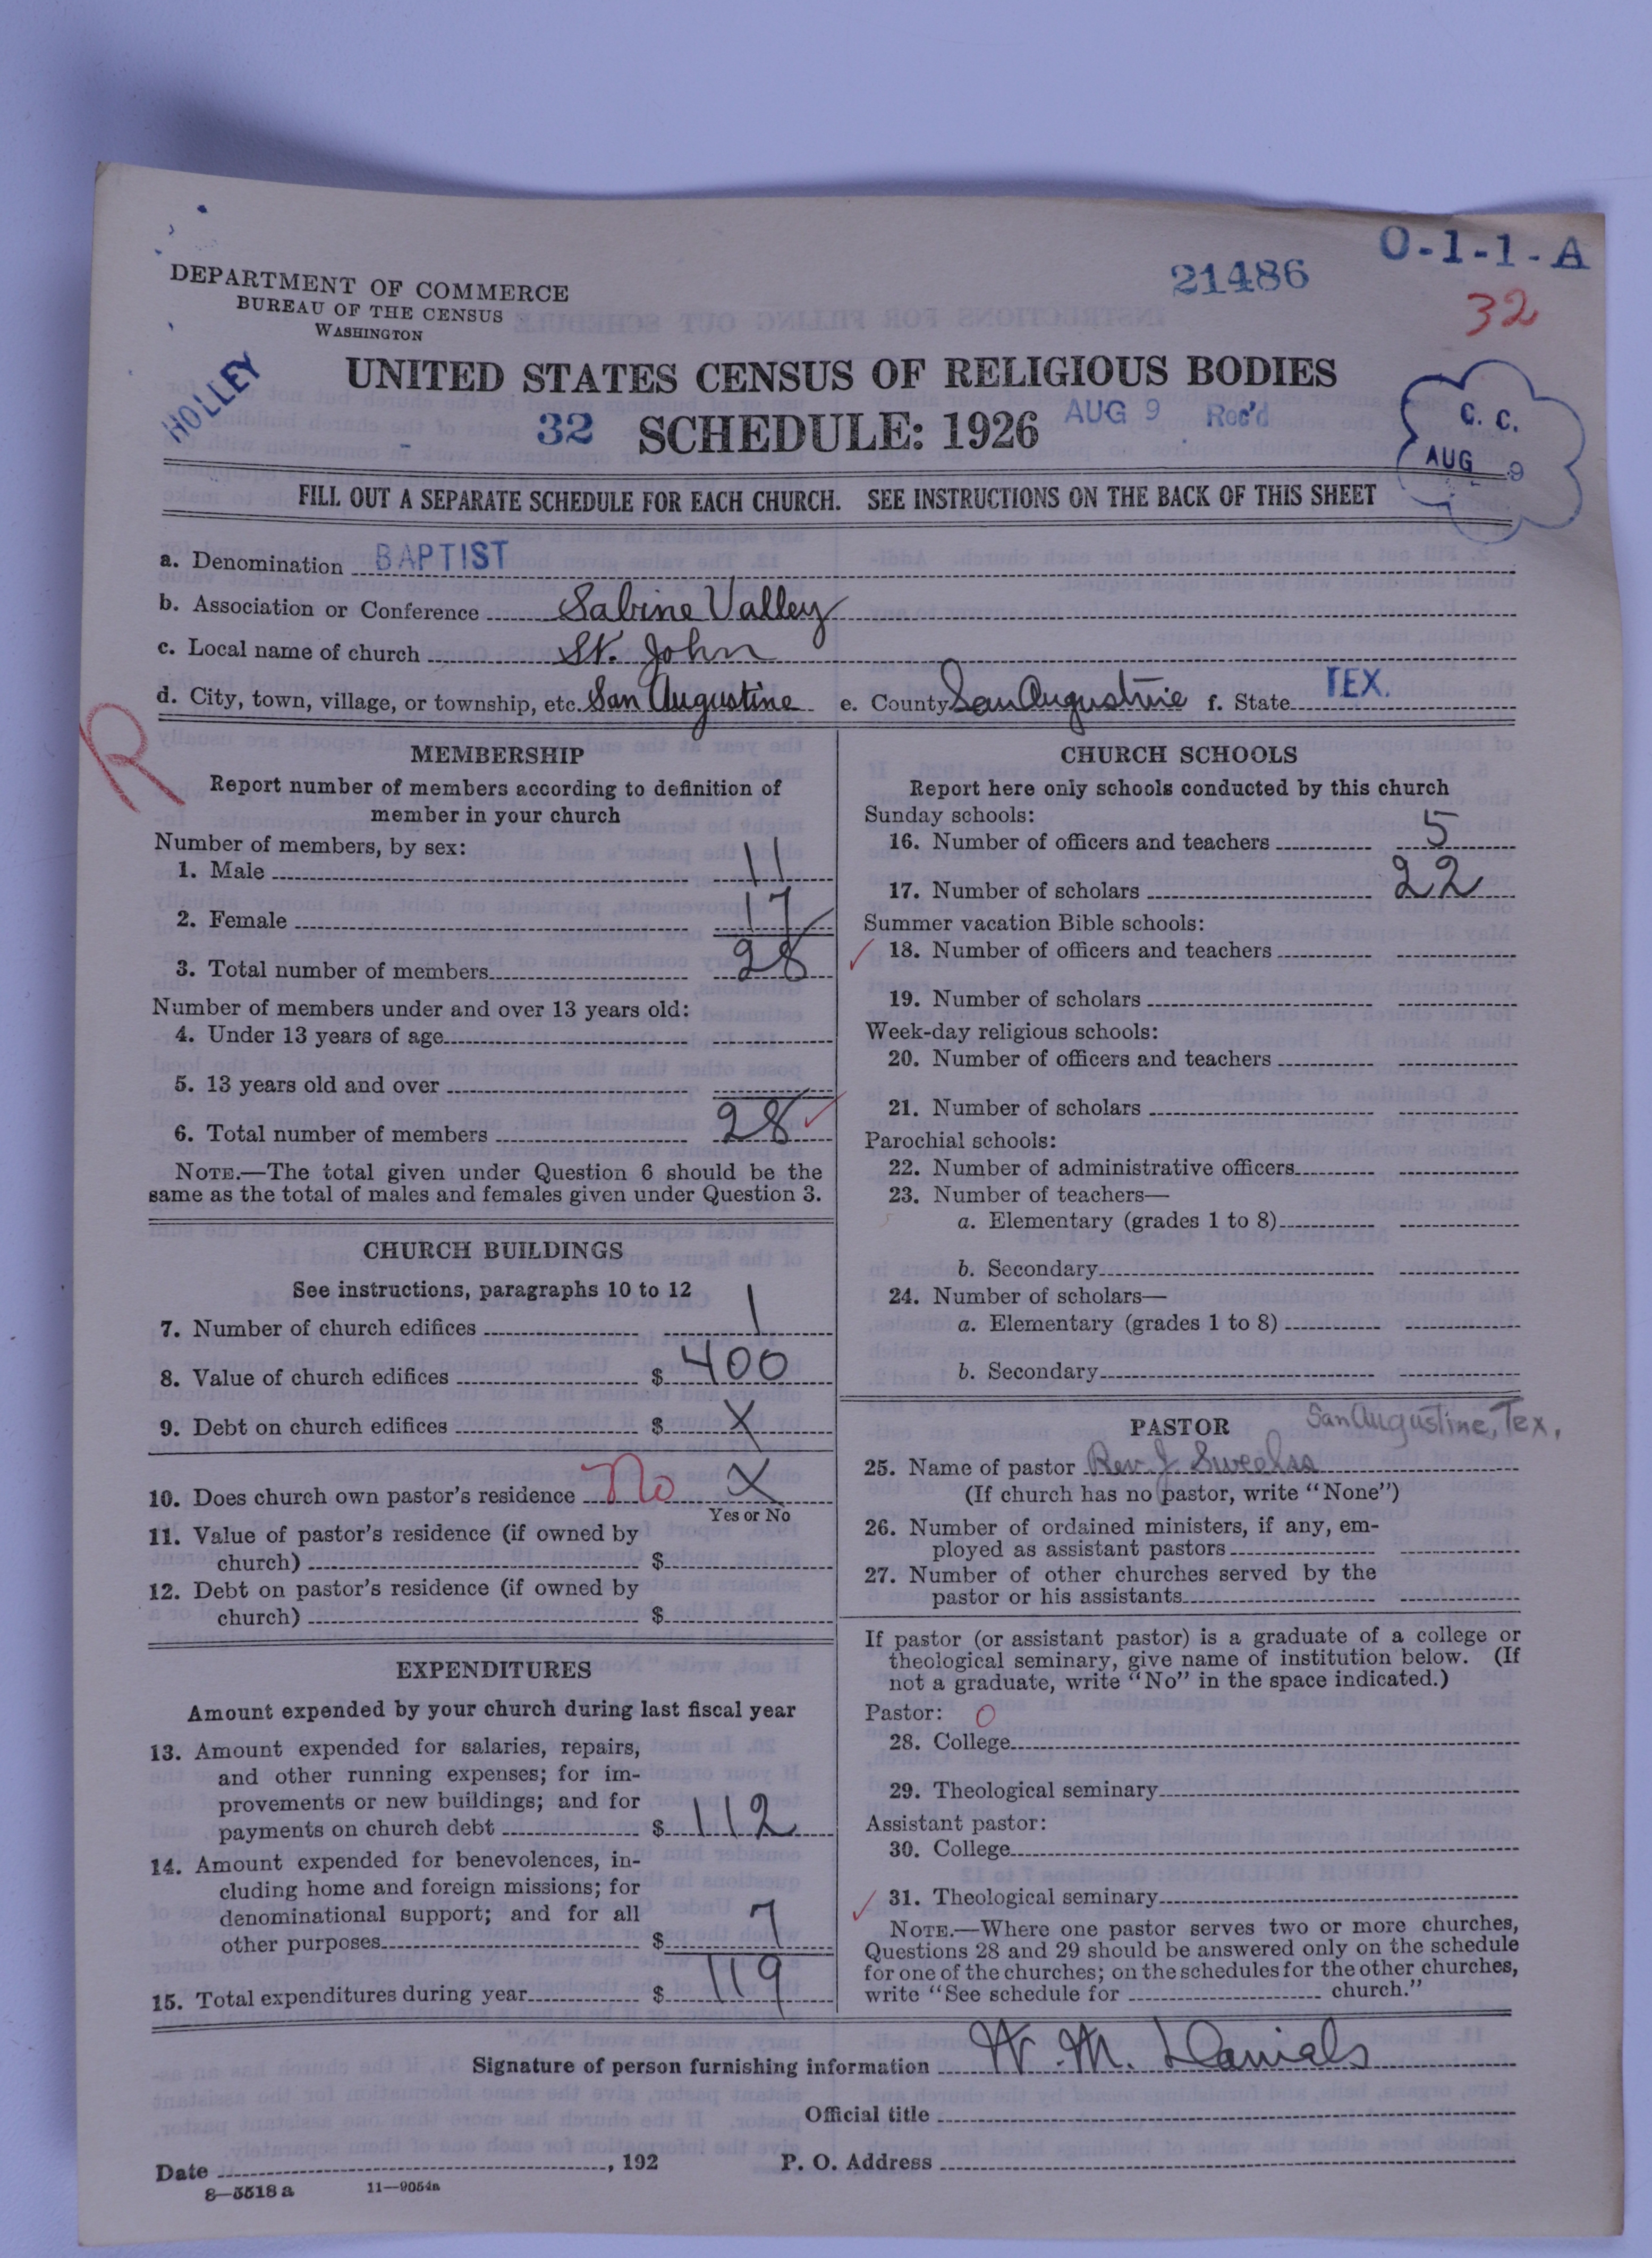 O-1-1-A
21486
32
DEPARTMENT OF COMMERCE
BUREAU OF THE CENSUS
WASHINGTON
HOLLEY
UNITED STATES CENSUS OF RELIGIOUS BODIES
32 SCHEDULE: 1926 AUG 9 Rec'd
C. C.
AUG 9
FILL OUT A SEPARATE SCHEDULE FOR EACH CHURCH. SEE INSTRUCTIONS ON THE BACK OF THIS SHEET
a. Denomination BAPTIST
b. Association or Conference Sabine Valley
c. Local name of church St. John
d. City, town, village, or township, etc. San Augustine e. County San Augustine f. State TEX.
R
MEMBERSHIP
Report number of members according to definition of
member in your church
Number of members, by sex:
1. Male 11
2. Female 17
3. Total number of members 28
Number of members under and over 13 years old:
4. Under 13 years of age
5. 13 years old and over
6. Total number of members 28
NOTE.—The total given under Question 6 should be the
same as the total of males and females given under Question 3.
CHURCH BUILDINGS
See instructions, paragraphs 10 to 12
7. Number of church edifices 1
8. Value of church edifices $ 400
9. Debt on church edifices $ X
10. Does church own pastor's residence No X
Yes or No
11. Value of pastor's residence (if owned by
church) $
12. Debt on pastor's residence (if owned by
church) $
EXPENDITURES
Amount expended by your church during last fiscal year
13. Amount expended for salaries, repairs,
and other running expenses; for im-
provements or new buildings; and for
payments on church debt $ 112
14. Amount expended for benevolences, in-
cluding home and foreign missions; for
denominational support; and for all
other purposes $ 7
15. Total expenditures during year $ 119
CHURCH SCHOOLS
Report here only schools conducted by this church
Sunday schools:
16. Number of officers and teachers 5
17. Number of scholars 22
Summer vacation Bible schools:
18. Number of officers and teachers
19. Number of scholars
Week-day religious schools:
20. Number of officers and teachers
21. Number of scholars
Parochial schools:
22. Number of administrative officers
23. Number of teachers—
a. Elementary (grades 1 to 8)
b. Secondary
24. Number of scholars—
a. Elementary (grades 1 to 8)
b. Secondary
PASTOR San Augustine, Tex.
25. Name of pastor Rev. J
(If church has no pastor, write "None")
26. Number of ordained ministers, if any, em-
ployed as assistant pastors
27. Number of other churches served by the
pastor or his assistants
If pastor (or assistant pastor) is a graduate of a college or
theological seminary, give name of institution below. (If
not a graduate, write "No" in the space indicated.)
Pastor: 0
28. College
29. Theological seminary
Assistant pastor:
30. College
31. Theological seminary
NOTE.—Where one pastor serves two or more churches,
Questions 28 and 29 should be answered only on the schedule
for one of the churches; on the schedules for the other churches,
write "See schedule for church."
Signature of person furnishing information W. M. Daniels
Official title
Date , 192 P. O. Address
8—5518 a 11—9054a